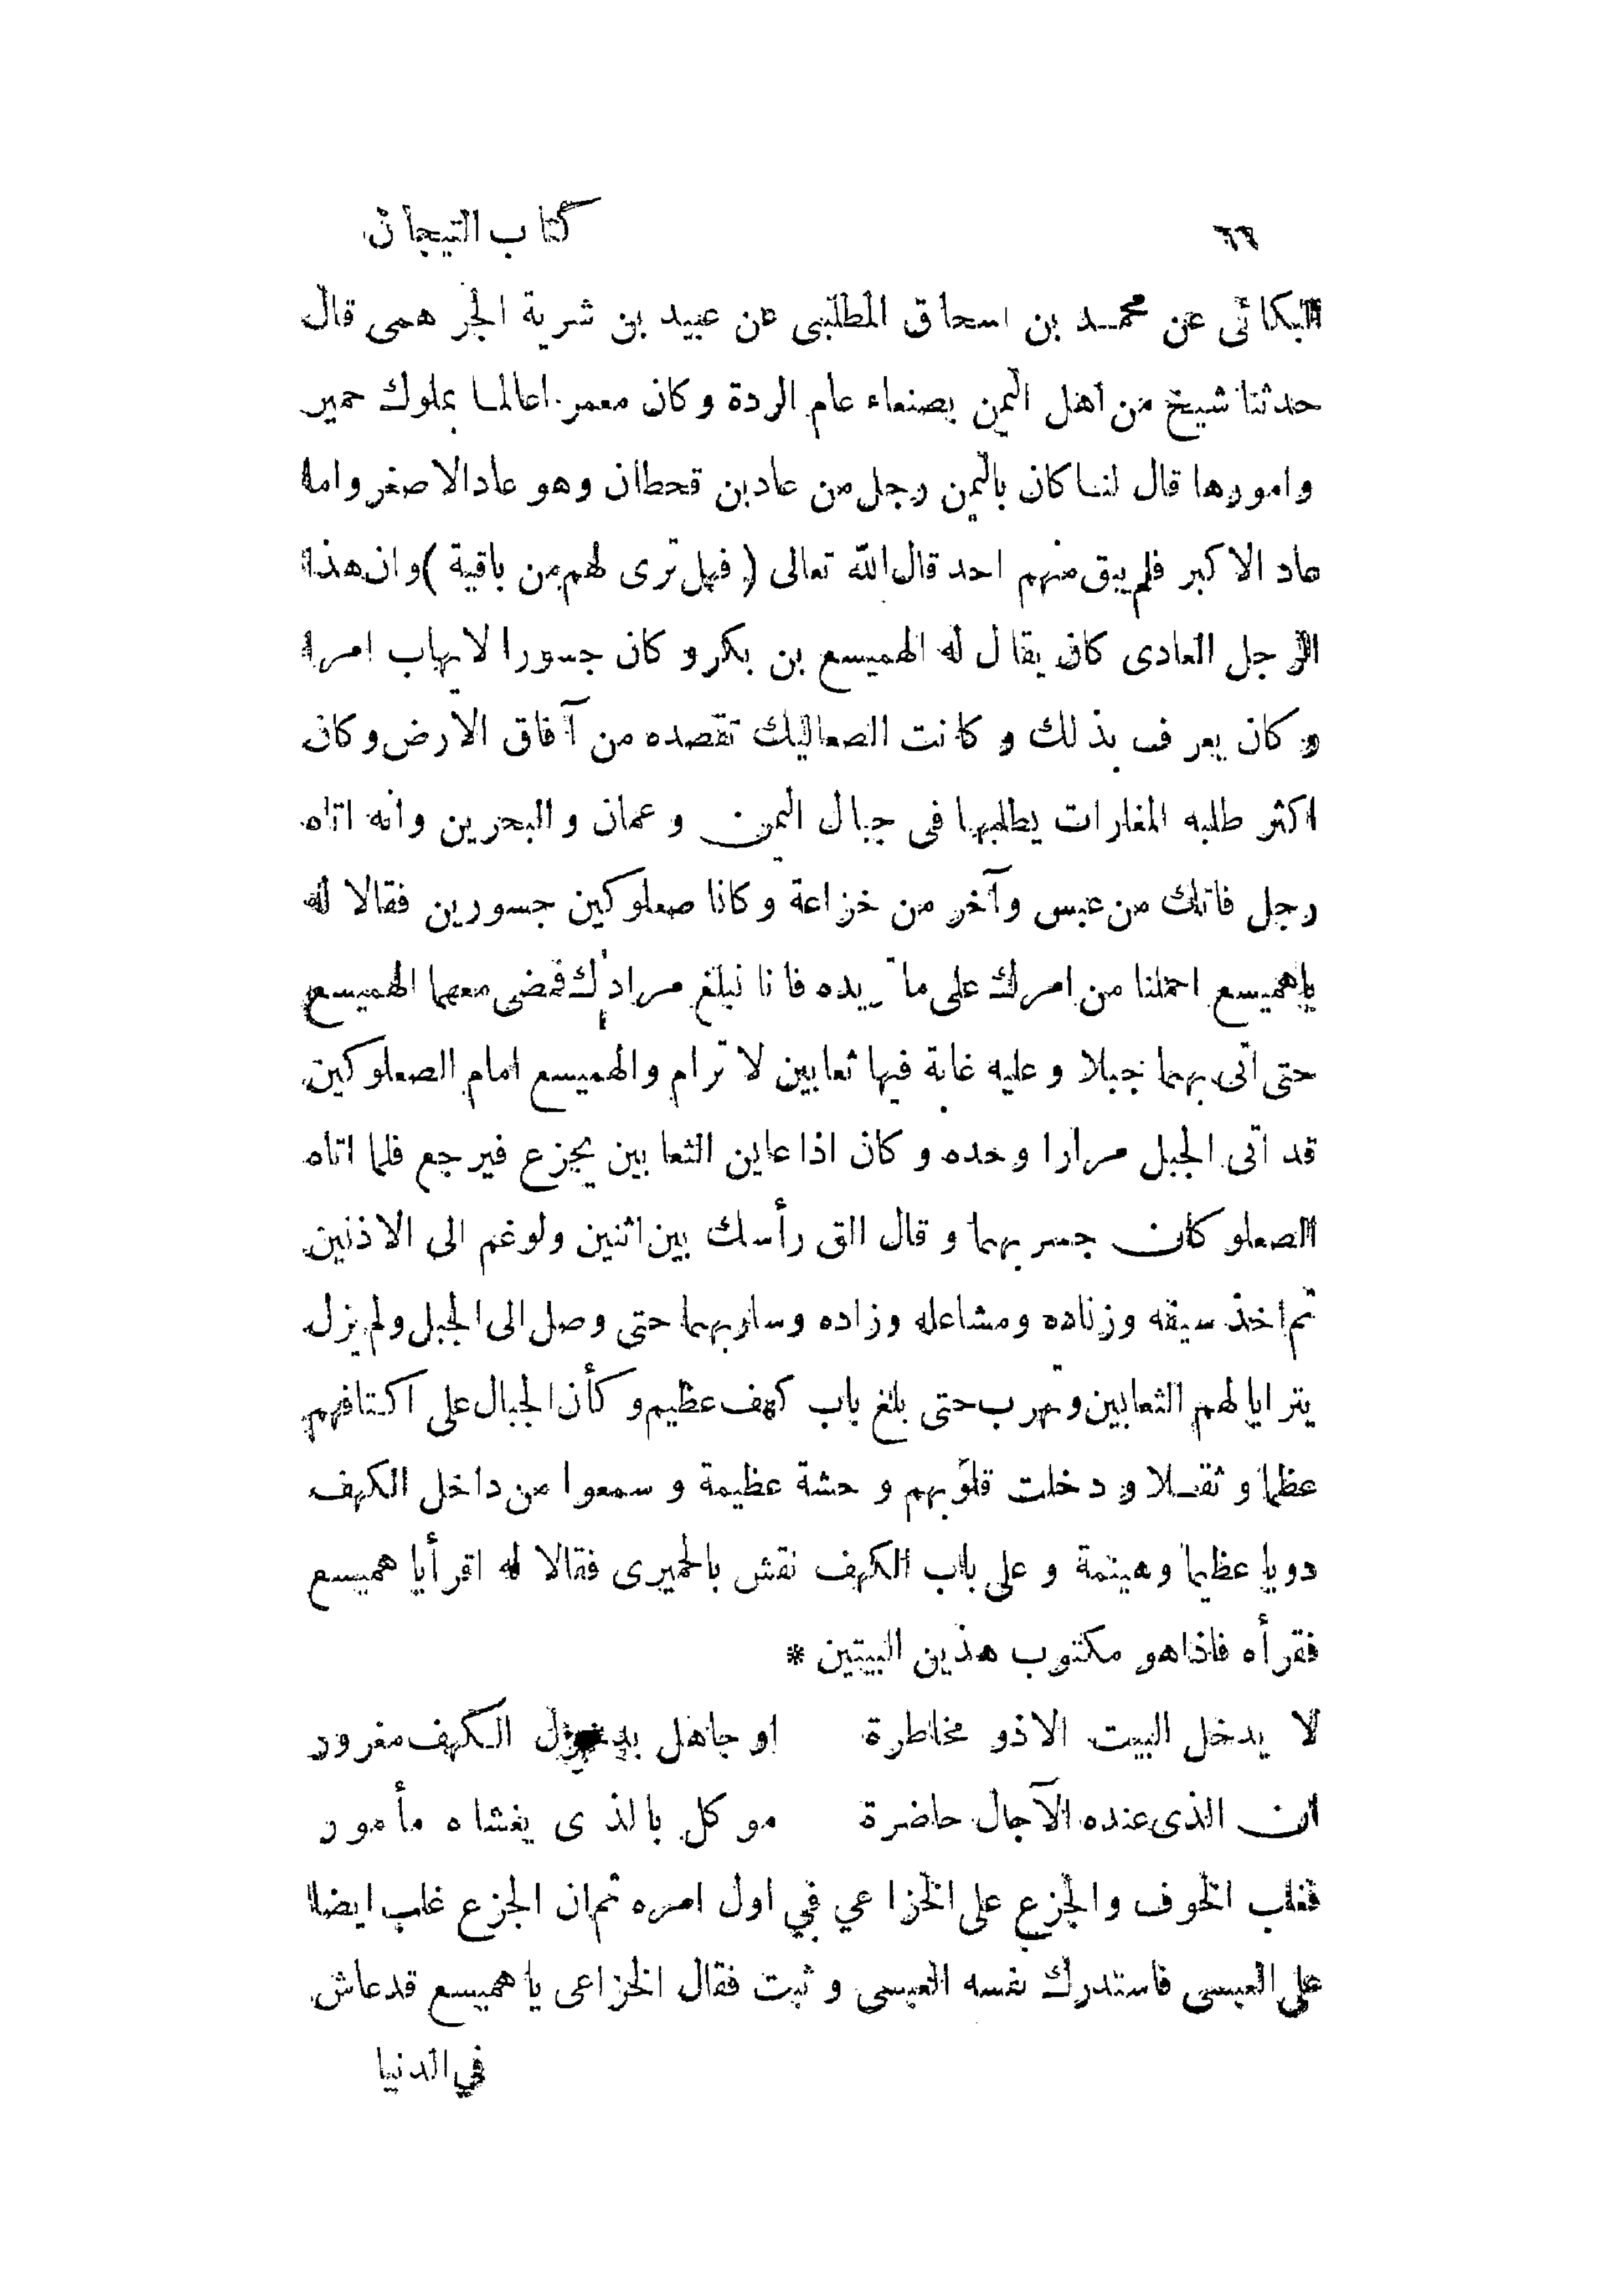 ٦٦ كتاب التيجان
البكائى عن محمد بن اسحاق المطلبى عن عبيد بن شرية الجرهمى قال
حدثنا شيخ من اهل اليمن بصنعاء عام الردة وكان معمرا عالما بملوك حمير
وامورها قال لنا كان باليمن رجل من عاد بن قحطان وهو عاد الاصغر واما
عاد الاكبر فلم يبق منهم احد قال الله تعالى (فهل ترى لهم من باقية) وان هذا
الرجل العادى كان يقال له الهميسع بن بكر وكان جسورا لا يهاب امرا
وكان يعرف بذلك وكانت الصعاليك تقصده من آفاق الارض وكان
اكثر طلبه المغارات يطلبها فى جبال اليمن وعمان والبحرين وانه اتاه
رجل فاتك من عبس وآخر من خزاعة وكانا صعلوكين جسورين فقالا له
ياهميسع احملنا من امرك على ما تريده فانا نبلغ مرادك فمضى معهما الهميسع
حتى اتى بهما جبلا وعليه غابة فيها ثعابين لا ترام والهميسع امام الصعلوكين
قد اتى الجبل مرارا وحده وكان اذا عاين الثعابين يجزع فيرجع فلما اتاه
الصعلوكان جسر بهما وقال الق رأسك بين اثنين ولو غم الى الاذنين
ثم اخذ سيفه وزناده ومشاعله وزاده وسار بهما حتى وصل الى الجبل ولم يزل
يترايا لهم الثعابين وتهرب حتى بلغ باب كهف عظيم وكأن الجبال على اكتافهم
عظما وثقلا ودخلت قلوبهم وحشة عظيمة وسمعوا من داخل الكهف
دويا عظيما وهينمة وعلى باب الكهف نقش بالحميرى فقالا له اقرأ يا هميسع
فقرأه فاذا هو مكتوب هذين البيتين *
لا يدخل البيت الاذو مخاطرة او جاهل بدخول الكهف مغرور
ان الذى عنده الآجال حاضرة موكل بالذى يغشاه مأمور
فغلب الخوف والجزع على الخزاعي في اول امره ثم ان الجزع غلب ايضا
على العبسى فاستدرك نفسه العبسى وثبت فقال الخزاعى يا هميسع قد عاش
في الدنيا